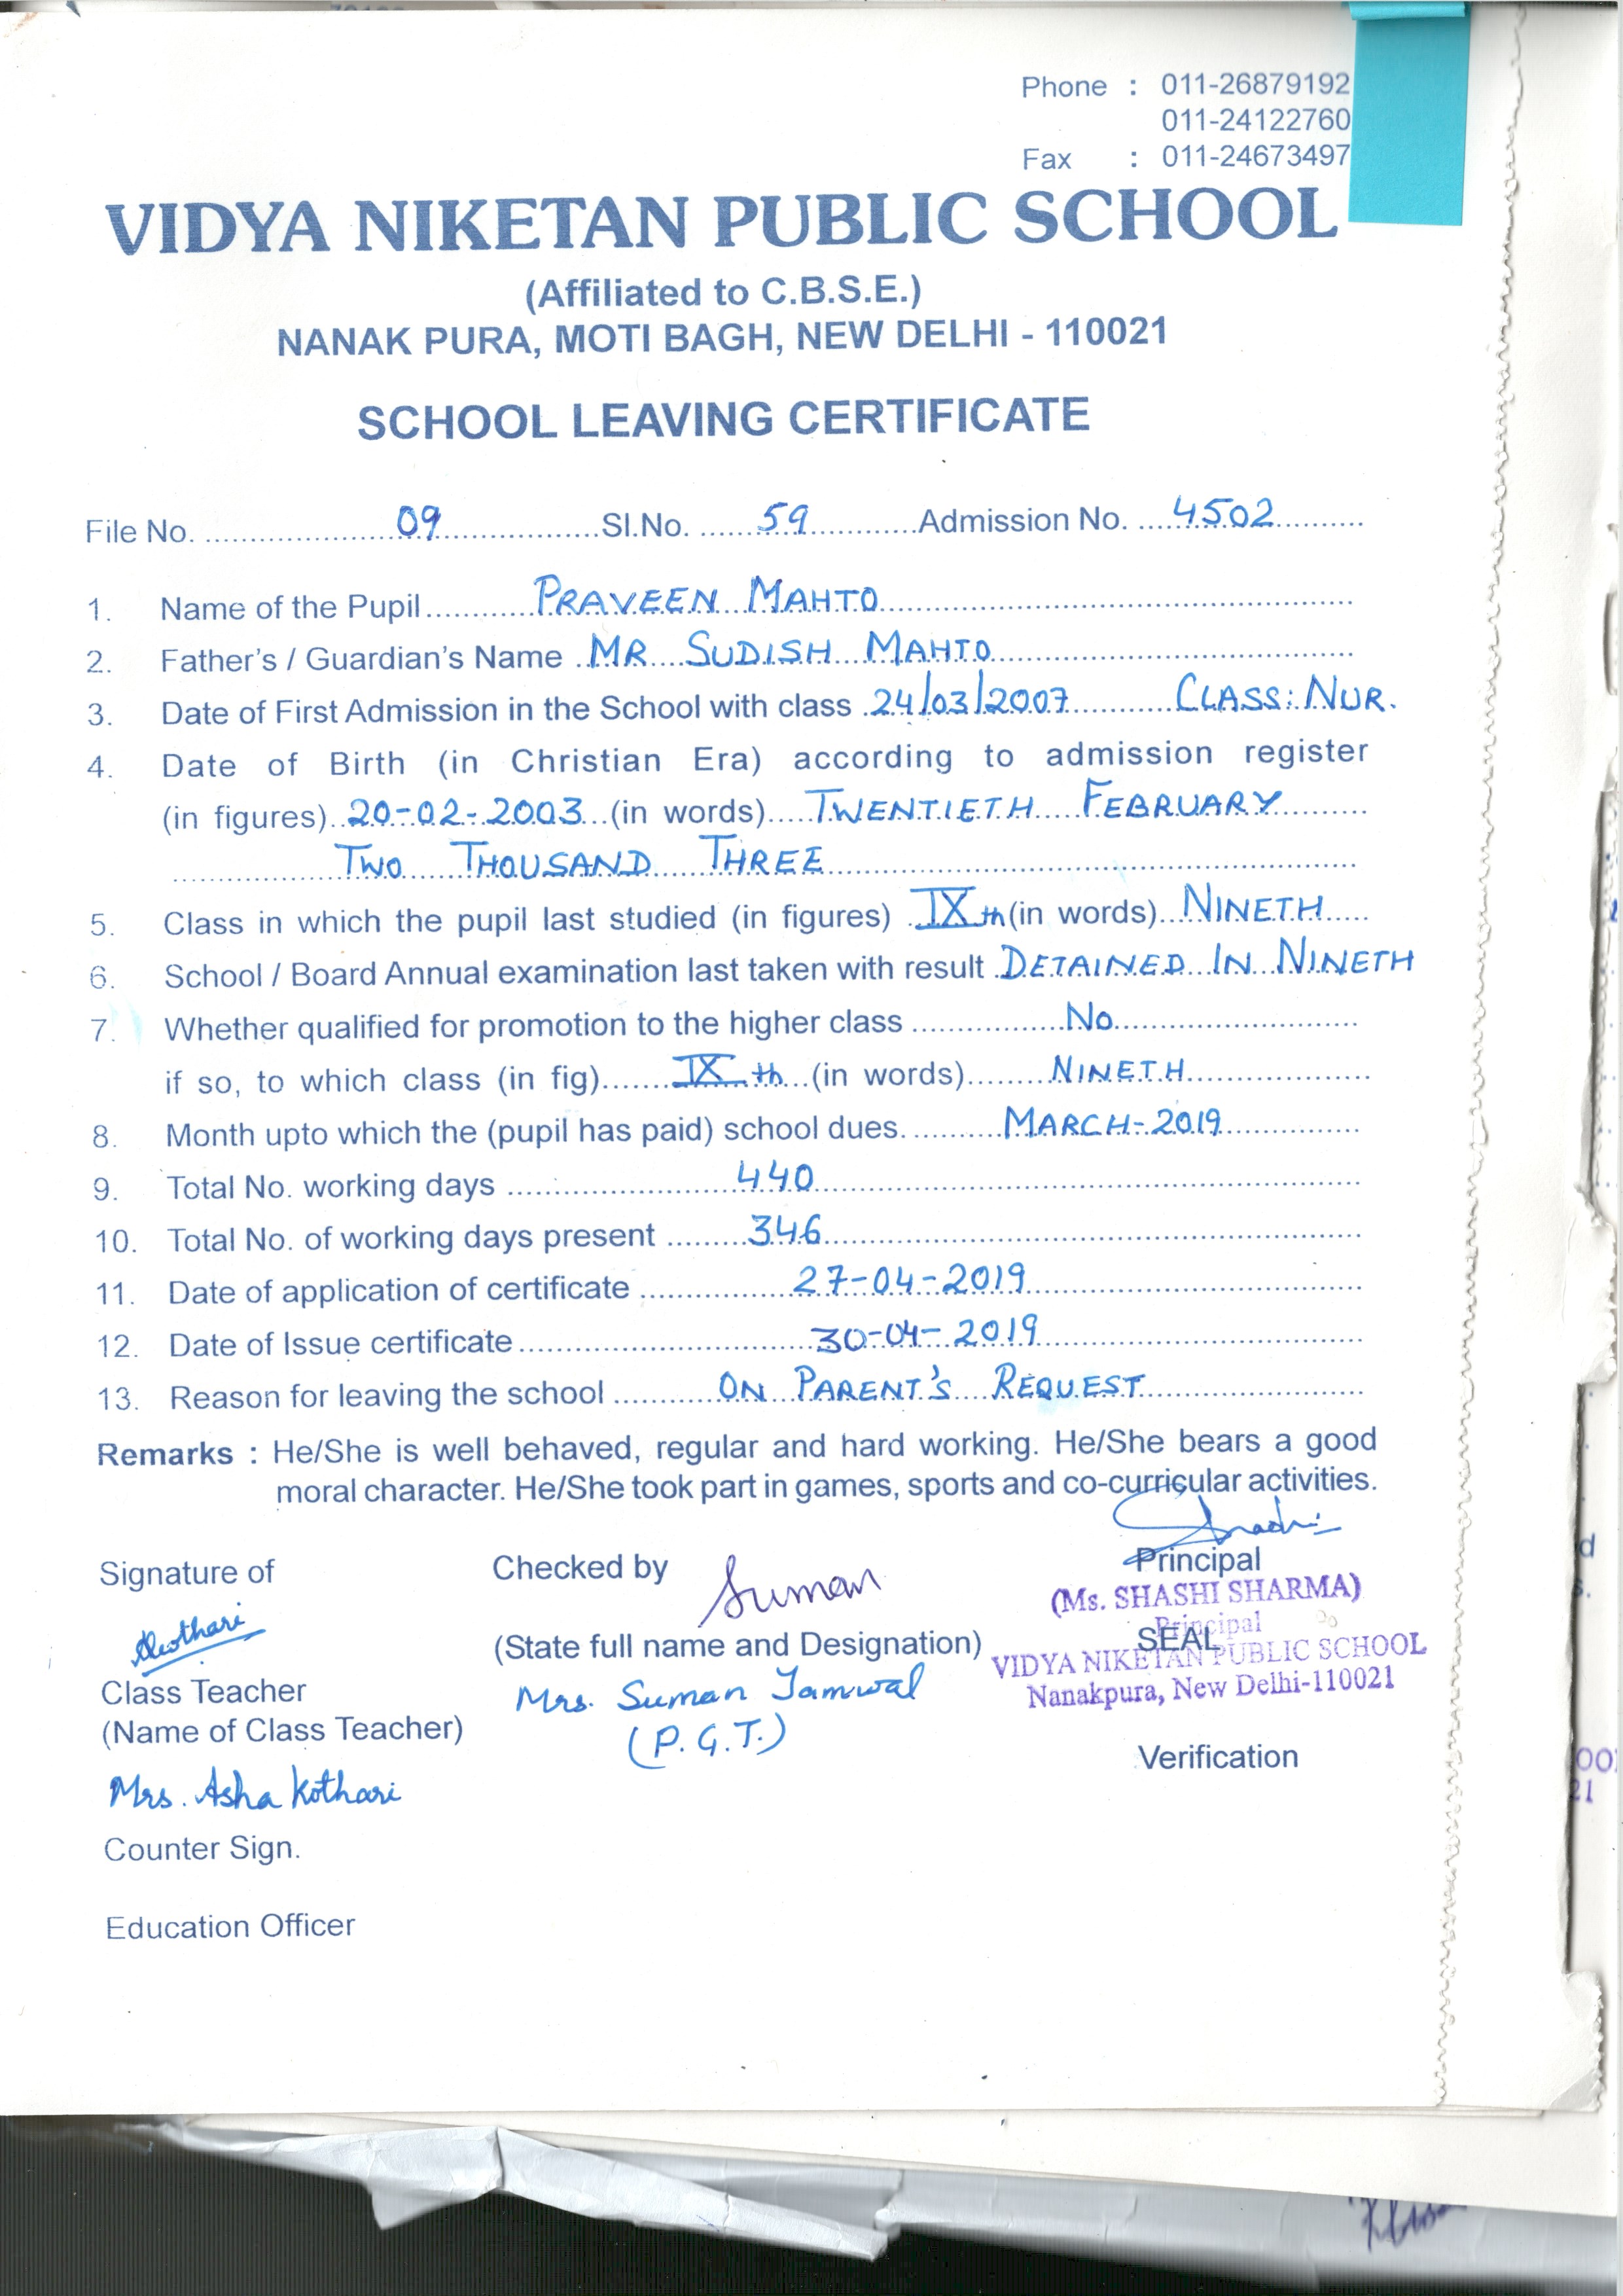 Phone : 011-26879192
011-24122760
Fax : 011-24673497
VIDYA NIKETAN PUBLIC SCHOOL
(Affiliated to C.B.S.E.)
NANAK PURA, MOTI BAGH, NEW DELHI - 110021
SCHOOL LEAVING CERTIFICATE
File No. 09 Sl.No. 59 Admission No. 4502
1. Name of the Pupil PRAVEEN MAHTO
2. Father's / Guardian's Name MR SUDISH MAHTO
3. Date of First Admission in the School with class 24/03/2007 CLASS: NUR.
4. Date of Birth (in Christian Era) according to admission register
(in figures) 20-02-2003 (in words) TWENTIETH FEBRUARY
TWO THOUSAND THREE
5. Class in which the pupil last studied (in figures) IXth (in words) NINETH
6. School / Board Annual examination last taken with result DETAINED IN NINETH
7. Whether qualified for promotion to the higher class No
if so, to which class (in fig) IXth (in words) NINETH
8. Month upto which the (pupil has paid) school dues. MARCH-2019
9. Total No. working days 440
10. Total No. of working days present 346
11. Date of application of certificate 27-04-2019
12. Date of Issue certificate 30-04-2019
13. Reason for leaving the school ON PARENT'S REQUEST
Remarks : He/She is well behaved, regular and hard working. He/She bears a good
moral character. He/She took part in games, sports and co-curricular activities.
Signature of Checked by Suman Principal
(Ms. SHASHI SHARMA)
Principal
Kothari (State full name and Designation) SEAL
VIDYA NIKETAN PUBLIC SCHOOL
Nanakpura, New Delhi-110021
Class Teacher Mrs. Suman Jamwal
(Name of Class Teacher) (P.G.T.)
Verification
Mrs. Asha Kothari
Counter Sign.
Education Officer